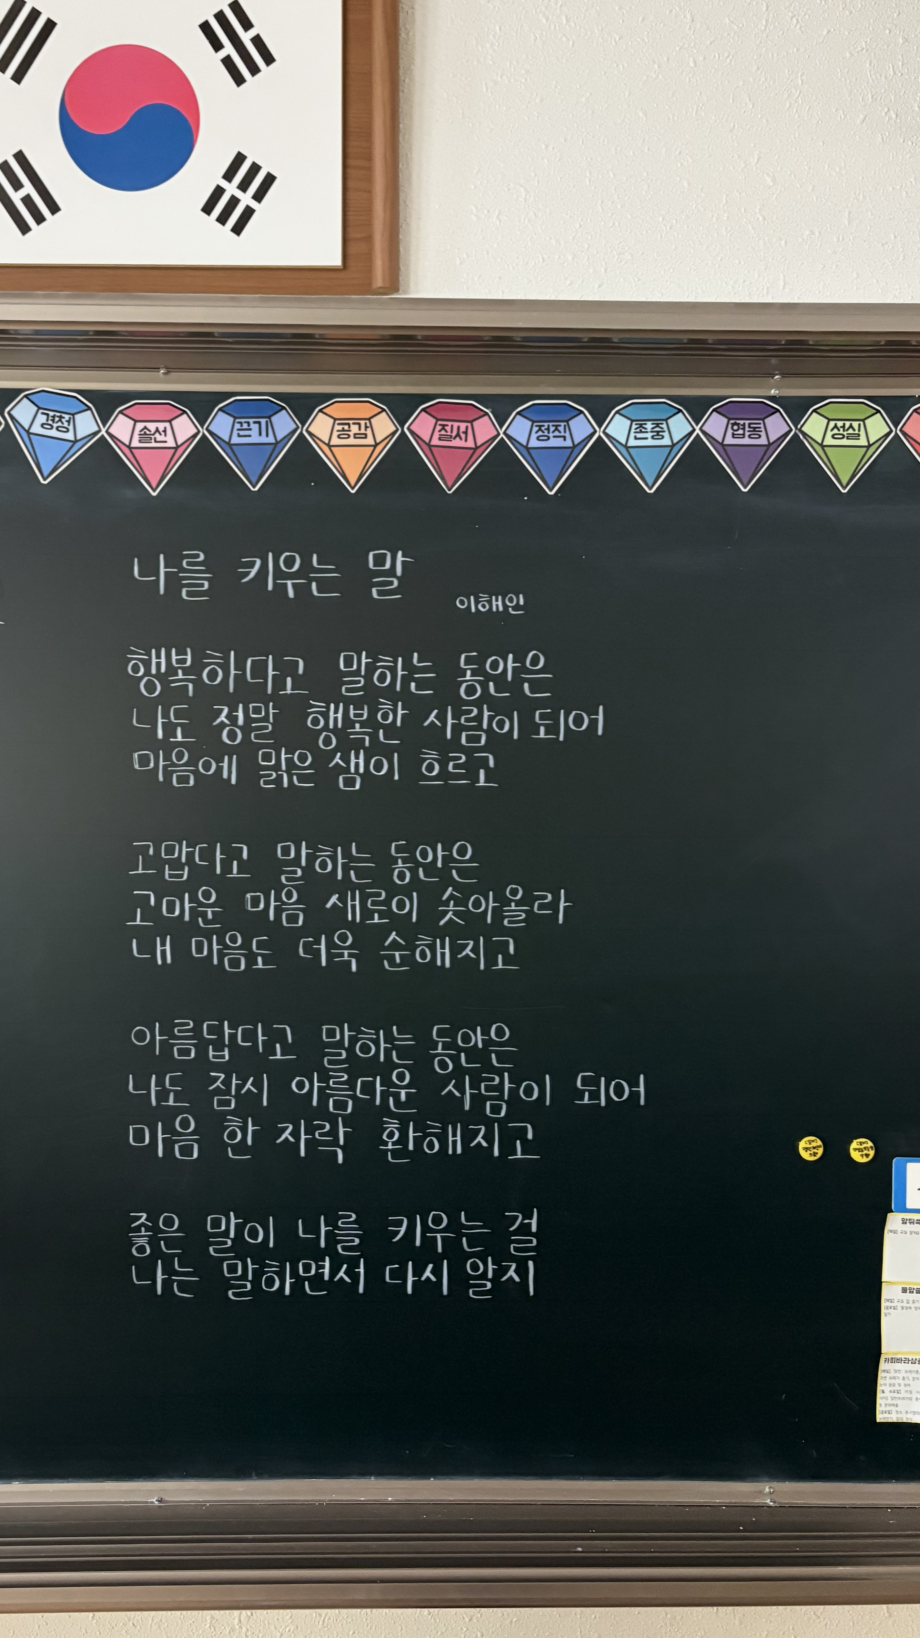 경청 솔선 끈기 공감 질서 정직 존중 협동 성실
나를 키우는 말
이해인
행복하다고 말하는 동안은
나도 정말 행복한 사람이 되어
마음에 맑은 샘이 흐르고
고맙다고 말하는 동안은
고마운 마음 새로이 솟아올라
내 마음도 더욱 순해지고
아름답다고 말하는 동안은
나도 잠시 아름다운 사람이 되어
마음 한 자락 환해지고
좋은 말이 나를 키우는 걸
나는 말하면서 다시 알지